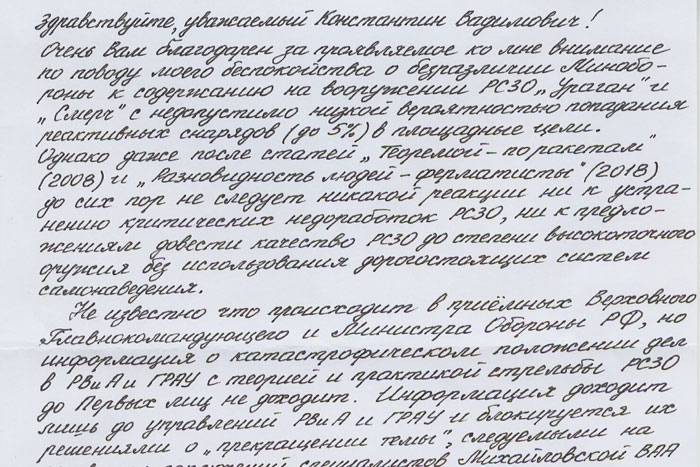 Здравствуйте, уважаемый Константин Вадимович!
Очень Вам благодарен за проявляемое ко мне внимание
по поводу моего беспокойства о безразличии Минобо-
роны к содержанию на вооружении РСЗО „Ураган" и
„Смерч" с недопустимо низкой вероятностью попадания
реактивных снарядов (до 5%) в площадные цели.
Однако даже после статей „Теоремой – по ракетам"
(2008) и „Разновидность людей – ферматисты" (2018)
до сих пор не следует никакой реакции ни к устра-
нению критических недоработок РСЗО, ни к предло-
жениям довести качество РСЗО до степени высокоточного
оружия без использования дорогостоящих систем
самонаведения.
Не известно что происходит в приёмных Верховного
Главнокомандующего и Министра Обороны РФ, но
информация о катастрофическом положении дел
в РВиА и ГРАУ с теорией и практикой стрельбы РСЗО
до Первых лиц не доходит. Информация доходит
лишь до управлений РВиА и ГРАУ и блокируется их
решениями о „прекращении темы", следуемыми на
специалистов Михайловской ВАА